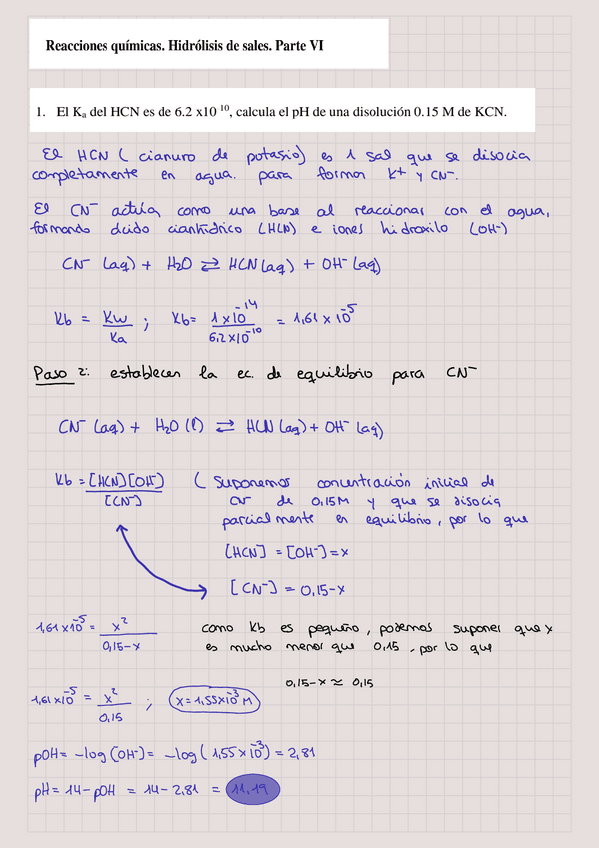 Reacciones químicas. Hidrólisis de sales. Parte VI
1. El Kₐ del HCN es de 6.2 x10 ¹⁰, calcula el pH de una disolución 0.15 M de KCN.
El HCN ( cianuro de potasio) es 1 sal que se disocia
completamente en agua. para formar K⁺ y CN⁻.
El CN⁻ actúa como una base al reaccionar con el agua,
formando ácido cianhídrico (HCN) e iones hidroxilo (OH⁻)
CN⁻ (aq) + H₂O ⇄ HCN (aq) + OH⁻ (aq)
Kb = Kw/Ka ; Kb = 1x10⁻¹⁴/6,2x10⁻¹⁰ = 1,61 x 10⁻⁵
Paso 2: establecer la ec. de equilibrio para CN⁻
CN⁻ (aq) + H₂O (l) ⇄ HCN (aq) + OH⁻ (aq)
Kb = [HCN][OH⁻]/[CN⁻] ( Suponemos concentración inicial de
CN⁻ de 0,15M y que se disocia
parcialmente en equilibrio, por lo que
[HCN] = [OH⁻] = x
[CN⁻] = 0,15-x
1,61x10⁻⁵ = x²/0,15-x como Kb es pequeño, podemos suponer que x
es mucho menor que 0,15, por lo que
0,15-x ≈ 0,15
1,61x10⁻⁵ = x²/0,15 ; x = 1,55x10⁻³ M
pOH = -log [OH⁻) = -log ( 1,55 x 10⁻³) = 2,81
pH = 14 - pOH = 14 - 2,81 = 11,19